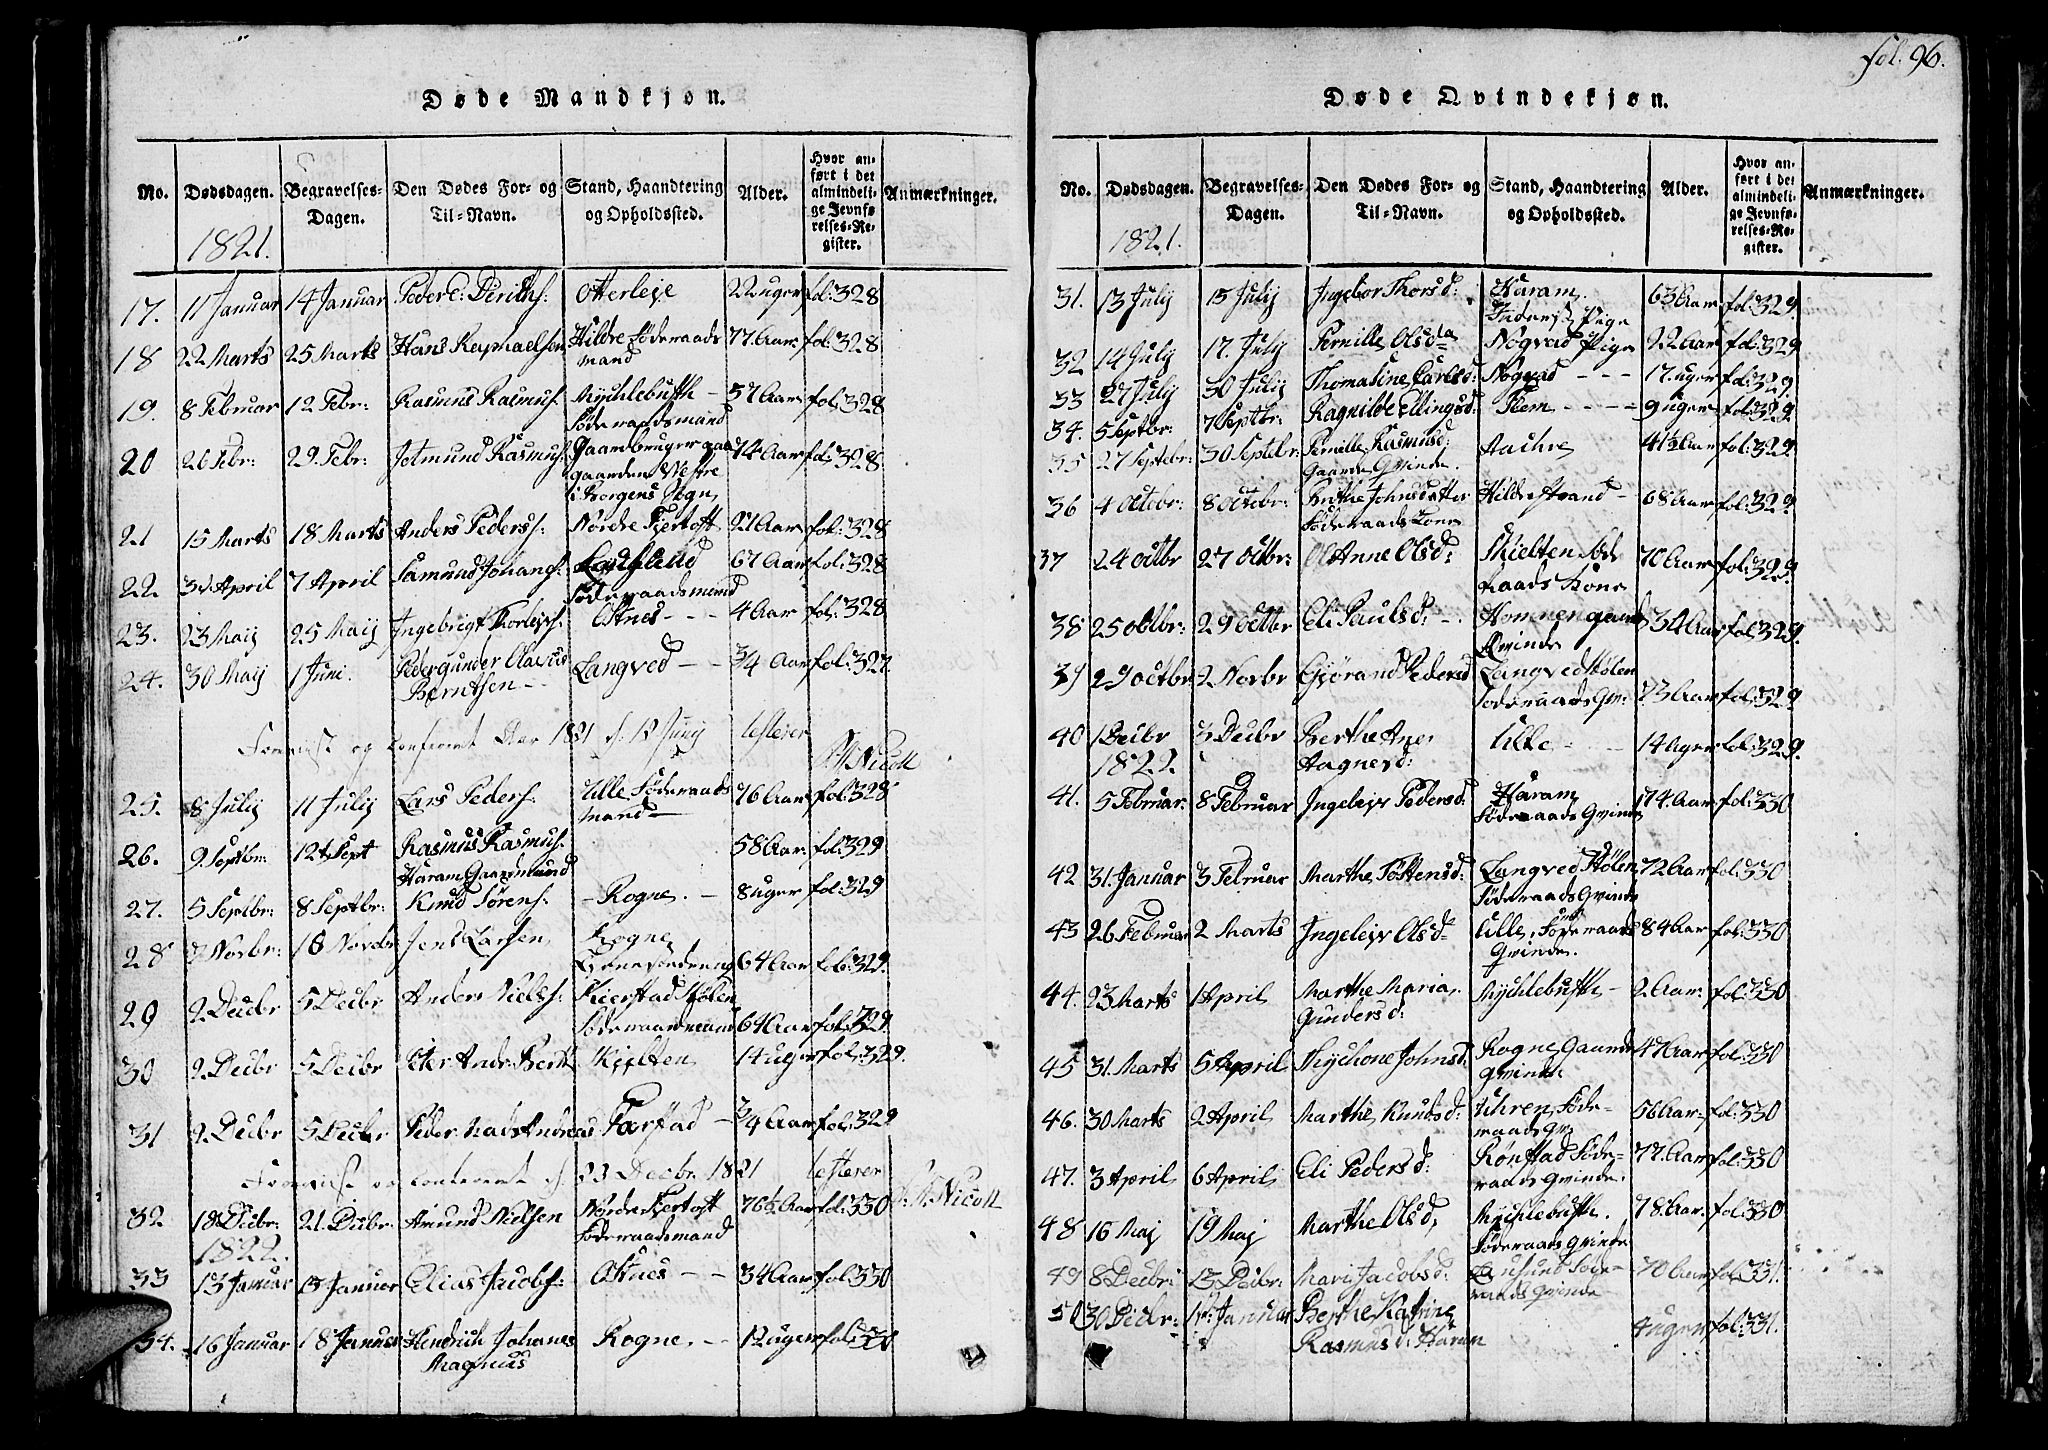 fol. 96.
Døde Mandkjøn.
No. Dødsdagen. Begravelses-Dagen. Den Dødes For- og Til-Navn. Stand, Haandtering og Opholdssted. Alder. Hvor anført i det almindelige Jevnførelses-Register. Anmærkninger.
1821.
17. 11 Januar 14 Januar Peder Otterleje 22 uger fol: 328
18 22 Marts 25 Marts Hans Raphaelsen Hildre Föderaads 77 Aar fol: 328
mand
19. 8 Februar 12 Febr: Rasmus Rasmus: Mychlebusth - 57 Aar fol: 328
Föderaadsmand
20 26 Febr: 29 Febr: Jetmund Rasmus: Gaardbruger paa 74 Aar fol: 328
gaarden Westre
i Borgens Sogn
21 15 Marts 18 Marts Anders Peders: Nordre Fiertoft 21 Aar fol: 328
22. April 7 April Samund Johans: 67 Aar fol: 328
Föderaadsmand
23. 23 Maij 25 Maij Ingebrigt Thorlejs: Ostnes - - - 4 Aar fol: 328
24. 30 Maij 1 Juni. Pedergunder Olavus Langved - - 3/4 Aar fol: 327.
Berntsen - -
og confereret 1821 d. 12 Junij testerer
Nicoll
25. 8 Julij 11 Julij Lars Peders: Ulle Föderaads 76 Aar fol: 328
mand -
26. 9. Septbr: 12 Sept Rasmus Rasmus: 58 Aar fol: 329
Haram Gaardmand
27. 5 Septbr: 8 Septbr: Knud Sörens: - Rogne. - 8 uger fol: 329
28 Novbr: 18 Novbr Jens Larsen Rogne
64 Aar fol: 329.
29 2 Decbr 5 Decbr Anders Niels: Kierstad Hölen
Föderaadsmand 64 Aar fol: 329.
30 2 Decbr 5 Decbr Peter Andr: Bernt Skjelten 14 uger fol: 329.
31 2 Decbr 5 Decbr Peder Mads Andreas - 3/4 Aar fol: 329
og confereret d. 23 Decbr. 1821 testerer
Nicoll
32 18 Decbr: 21 Decbr: Amund Nielsen Nordre Fiertoft 76 1/2 Aar fol: 330
Föderaadsmand
1822.
33 13 Januar 15 Januar Elias Jacobs: Ostnes - - 34 Aar fol: 330
34. 16 Januar 18 Januar Hendrich Johanes Rogne. - - 12 uger fol: 330
Magnus
Døde Qvindekjøn.
No. Dødsdagen. Begravelses-Dagen. Den Dødes For- og Til-Navn. Stand, Haandtering og Opholdssted. Alder. Hvor anført i det almindelige Jevnførelses-Register. Anmærkninger.
1821.
31. 13 Julij 15 Julij Ingebor Thorsd: Haram 63 Aar fol: 329.
Pige
32 14 Julij 17. Julij Pernille Olsda Nogvad Pige 22 Aar fol: 329
33 27 Julij 30 Julij Thomasine Carlsd: Nogvad - - - 17. uger fol: 329.
34. 5 Septbr: 7 Septbr: Ragnilde Ellingsd: Fiem - - - - 9 uger fol: 329.
35 27 Septebr: 30 Septebr: Pernille Rasmusd: 41 1/2 Aar fol: 329.
Gaards Qvinde.
36 4 Octobr: 8 Octobr: Brithe Johnsdatter Hildrestrand - 68 Aar fol: 329.
Föderaads Kone
37 24 octbr 27 Octbr: Anne Olsd: Skielten Föde 70 Aar fol: 329.
Raads Kone
38 25 octbr: 29 octbr Eli Paulsd: - - gaard 34 Aar fol: 329.
Qvinde
39 29 octbr 2 Novbr Gjörand Pedersd Langved Hölen
Föderaads Qv: 73 Aar fol: 329.
40 1 Decbr 3 Decbr Berthe Ane Ulle - - 14 uger fol: 329.
Aagnesd:
1822.
41. 5 Februar 8 Februar Ingelejv Pedersd: Haram 74. Aar fol: 330
Föderaads Qvinde
42 31. Januar 3 Februar Marthe Tostensd: Langved Hölen 72 Aar fol: 330
Föderaads Qvinde
43 26 Februar 2 Marts Ingelejv Olsd Ulle, Föderaads 84 Aar fol: 330
Qvinde.
44. 23 Marts 1 April Marthe Maria Mychlebusth - 2 Aar: fol: 330
Gundersd:
45 31. Marts 5 April Sychone Johnsd: Rogne, Gaard 47 Aar fol: 330
qvinde
46. 30 Marts 2 April Marthe Knudsd: Uhren, Föde- 56 Aar. fol: 330
raads qv
47. 3 April 6 April Eli Pedersd: Rönstad Föde- 77. Aar fol: 330
raads Qvinde.
48 16 Maj 19 Maj Marthe Olsd: Mychlebusth. 78. Aar. fol: 330
Föderaads Qvinde
49 8 Decbr: 13 Decbr: Mari Jacobsd: Föde- 70 Aar fol: 331.
raads Qvinde
50 30 Decbr: Januar Berthe Katrine uger fol: 331.
Rasmusd: Haram